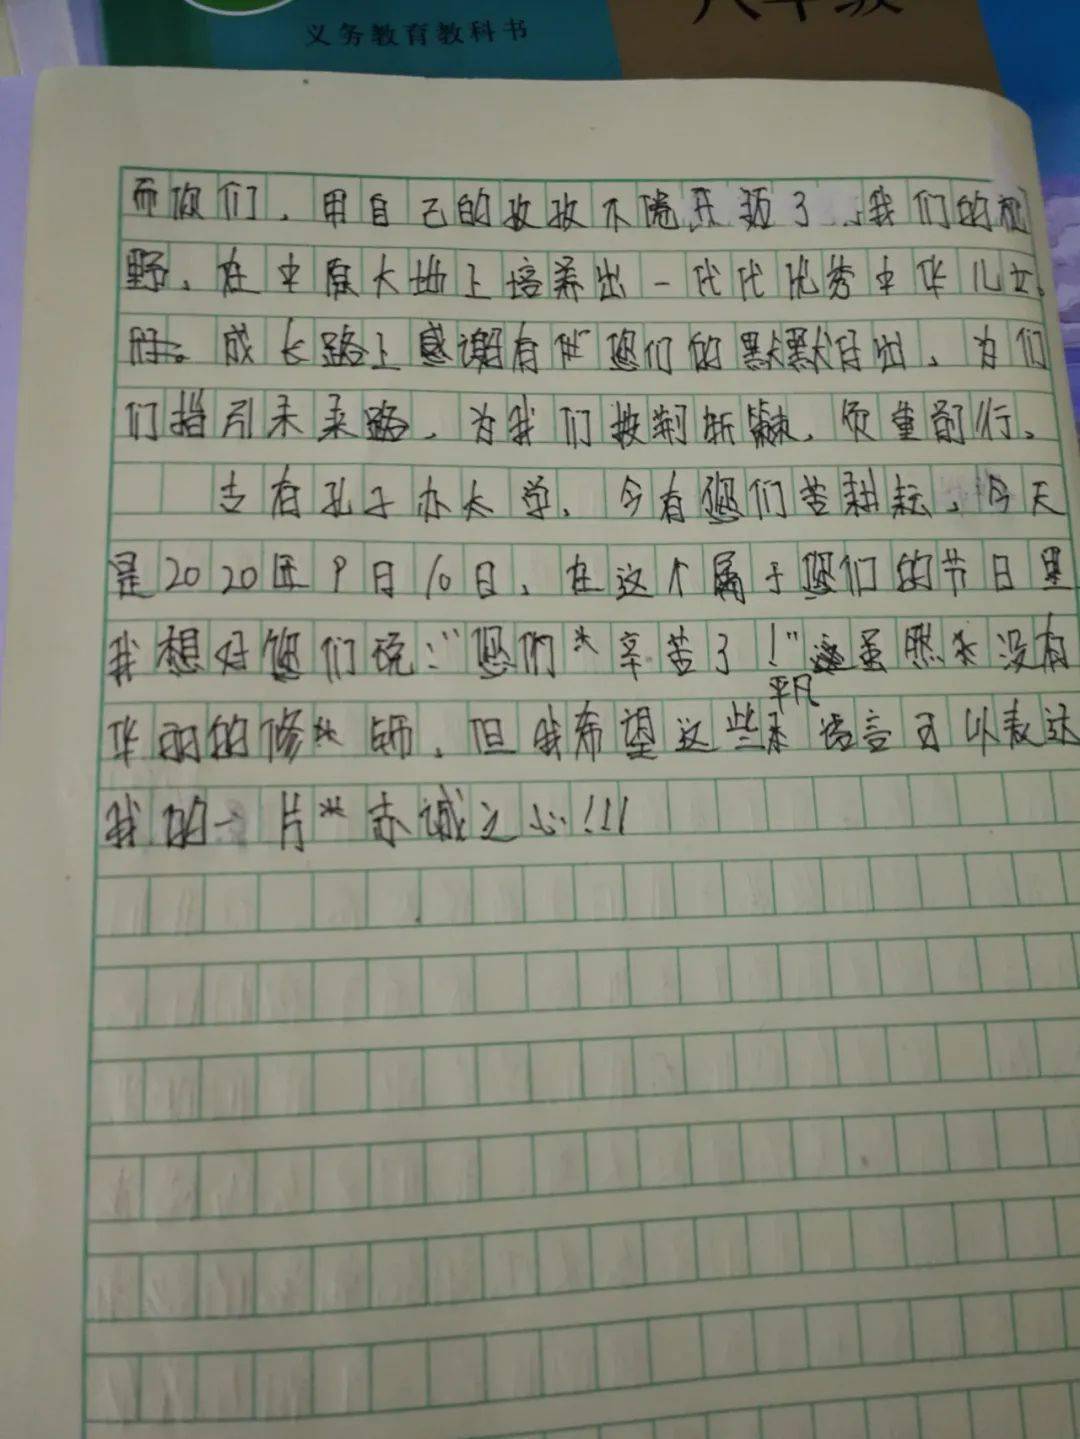 义务教育教科书
八年级
而您们，用自己的孜孜不倦开拓了我们的视
野，在中原大地上培养出一代代优秀中华儿女。
成长路上感谢有您们的默默付出，为们
们指引未来路，为我们披荆斩棘，负重前行。
古有孔子办大学，今有您们苦耕耘，今天
是2020年9月10日，在这个属于您们的节日里
我想好您们说：“您们辛苦了！”虽然没有
平凡
华丽的修饰，但我希望这些语言可以表达
我的一片赤诚之心！！！